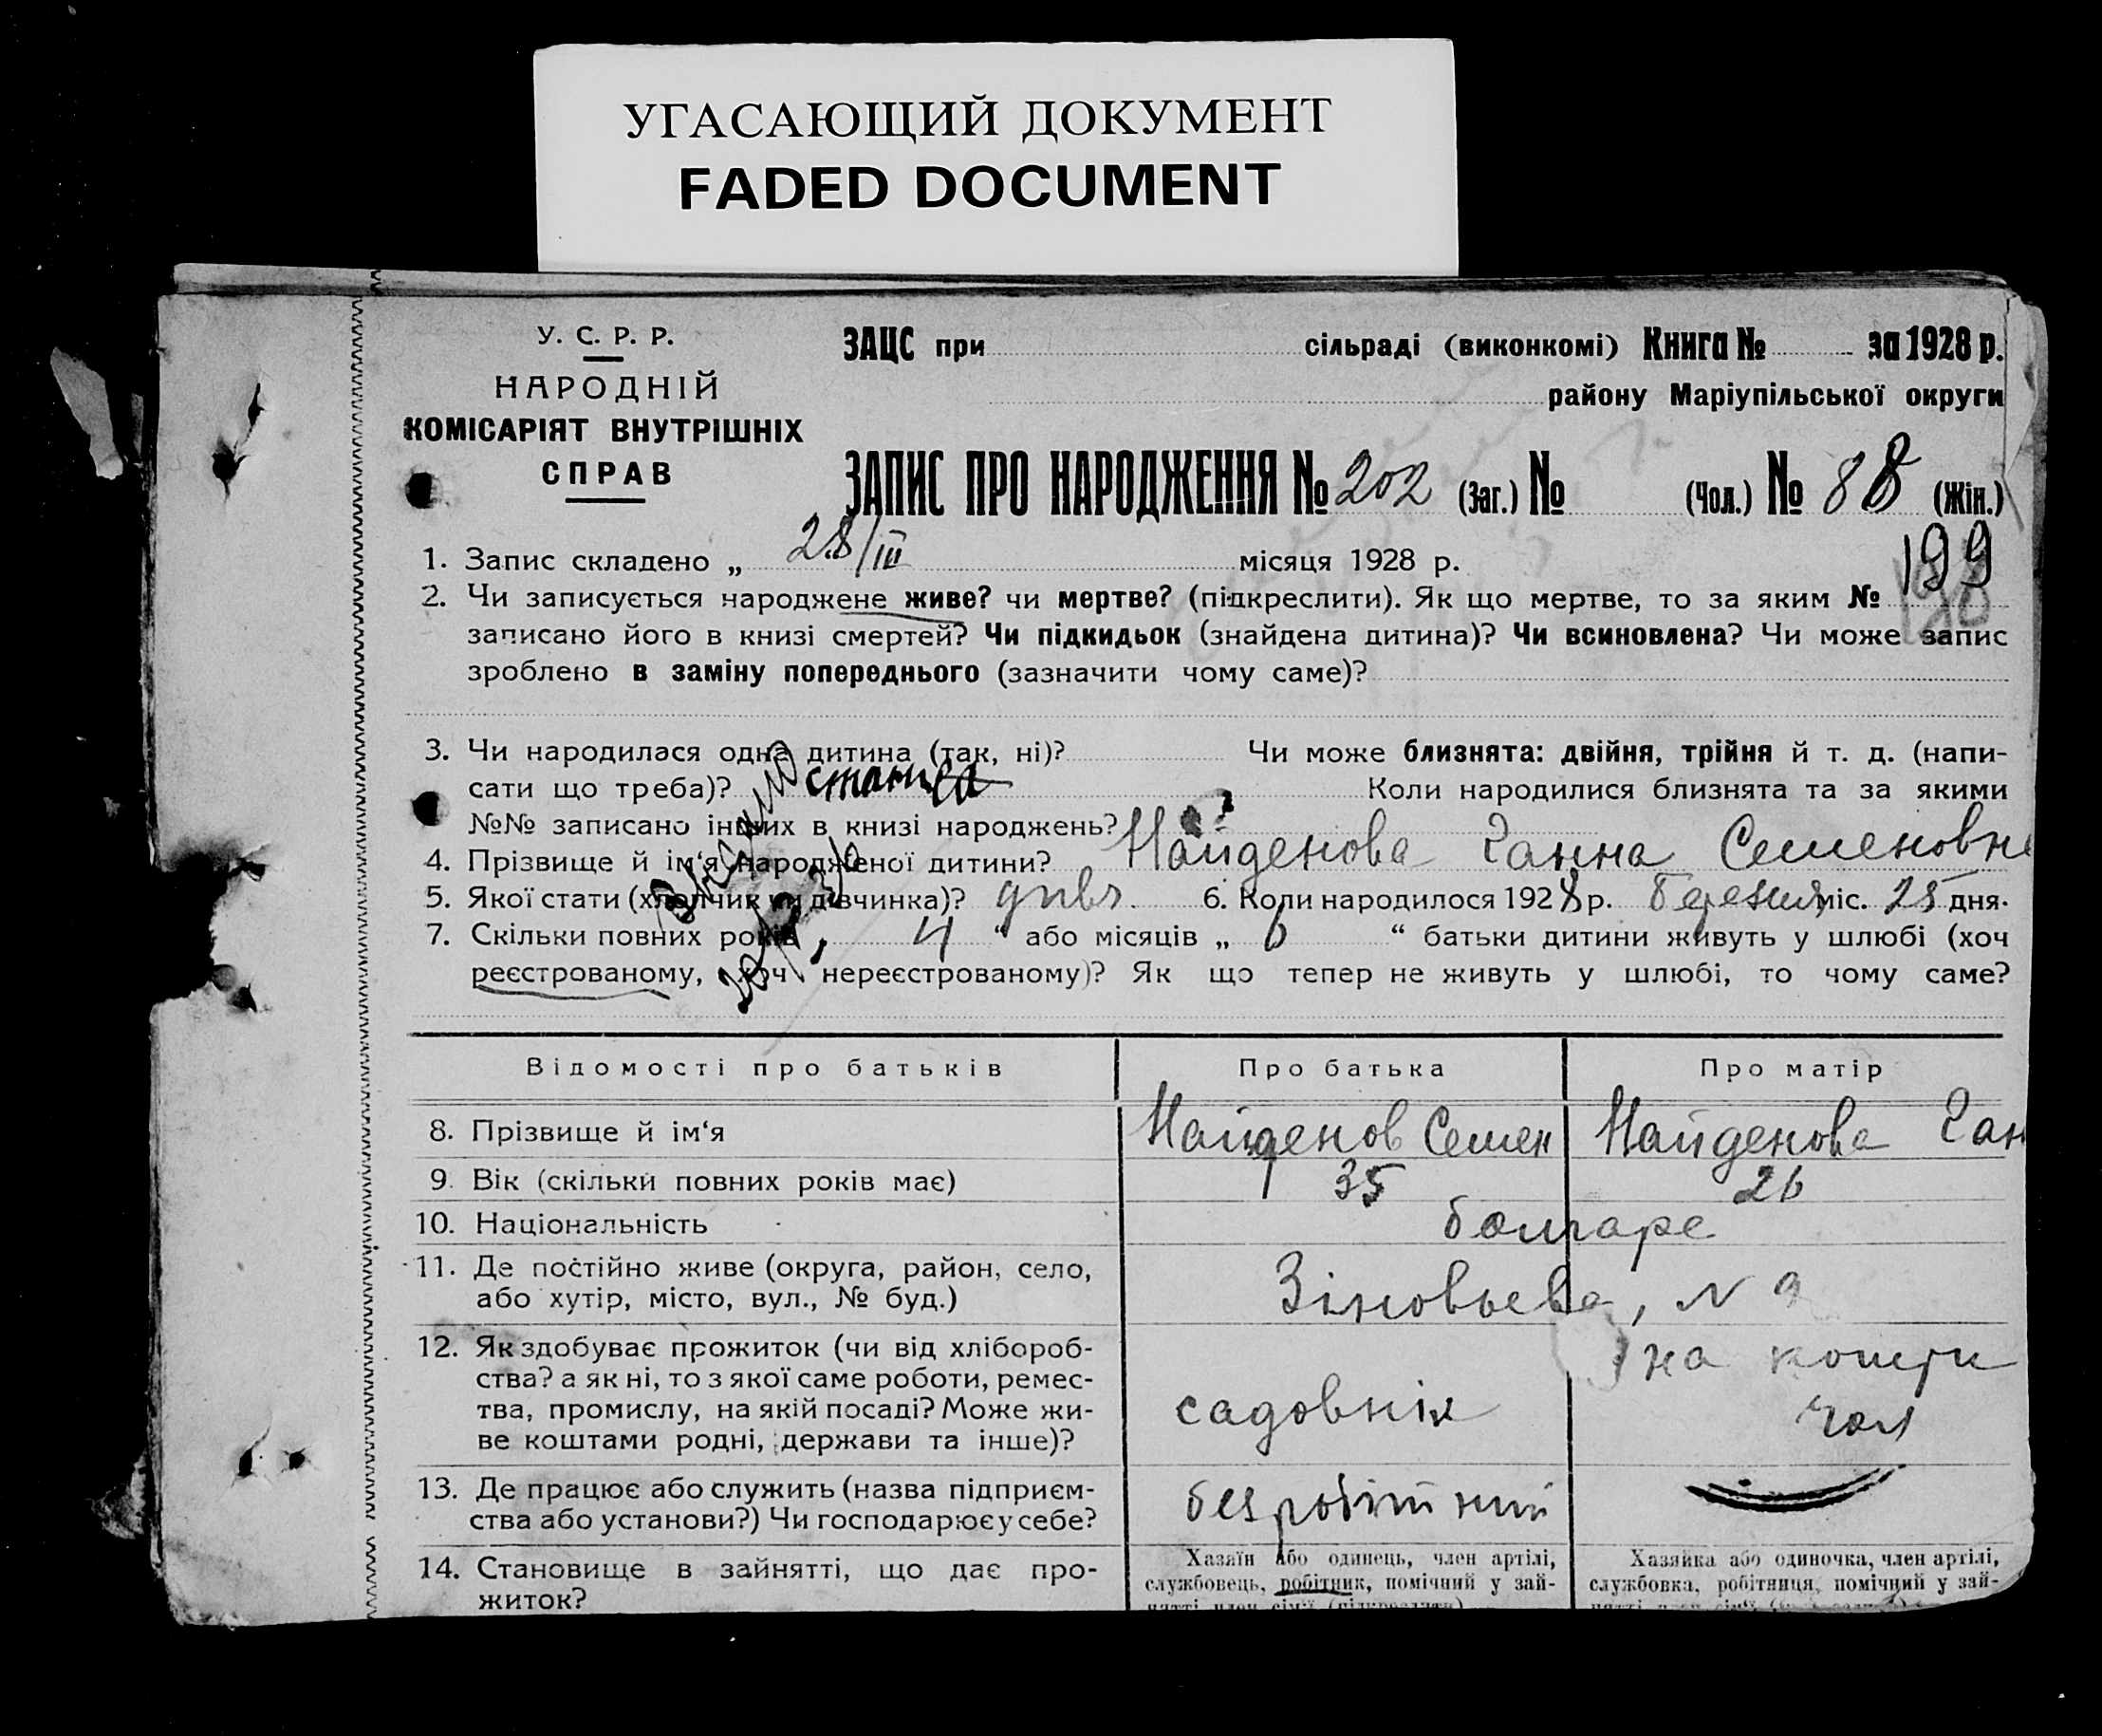 УГАСАЮЩИЙ ДОКУМЕНТ
FADED DOCUMENT
У. С. Р. Р.
НАРОДНІЙ
КОМІСАРІЯТ ВНУТРІШНІХ
СПРАВ
ЗАЦС при сільраді (виконкомі) Книга № за 1928 р.
району Маріупільської округи
ЗАПИС ПРО НАРОДЖЕННЯ № 202 (Заг.) № (Чол.) № 88 (Жін.)
199
1. Запис складено „ 28/III місяця 1928 р.
2. Чи записується народжене живе? чи мертве? (підкреслити). Як що мертве, то за яким №
записано його в книзі смертей? Чи підкидьок (знайдена дитина)? Чи всиновлена? Чи може запис
зроблено в заміну попереднього (зазначити чому саме)?
3. Чи народилася одна дитина (так, ні)? Чи може близнята: двійня, трійня й т. д. (напи-
сати що треба)? Коли народилися близнята та за якими
№№ записано інших в книзі народжень?
4. Прізвище й ім‘я народженої дитини? Найденова Ганна Семеновн
5. Якої стати (хлопчик чи дівчинка)? дивч. 6. Коли народилося 1928 р. березня міс. 25 дня.
7. Скільки повних років „ 4 “ або місяців „ 6 “ батьки дитини живуть у шлюбі (хоч
реєстрованому, хоч нереєстрованому)? Як що тепер не живуть у шлюбі, то чому саме?
Відомості про батьків Про батька Про матір
8. Прізвище й ім‘я Найденов Семен Найденова Ган
9. Вік (скільки повних років має) 35 26
10. Національність болгаре
11. Де постійно живе (округа, район, село,
або хутір, місто, вул., № буд.) Зіновьева, N 9
12. Як здобуває прожиток (чи від хлібороб-
ства? а як ні, то з якої саме роботи, ремес-
тва, промислу, на якій посаді? Може жи-
ве коштами родні, держави та інше)?
садовнік
на кошти
чол
13. Де працює або служить (назва підприєм-
ства або установи?) Чи господарює у себе?
безробітний
14. Становище в зайнятті, що дає про-
житок?
Хазяїн або одинець, член артілі,
службовець, робітник, помічний у зай-
нятті член сім‘ї (підкреслити)
Хазяйка або одиночка, член артілі,
службовка, робітниця, помічний у зай-